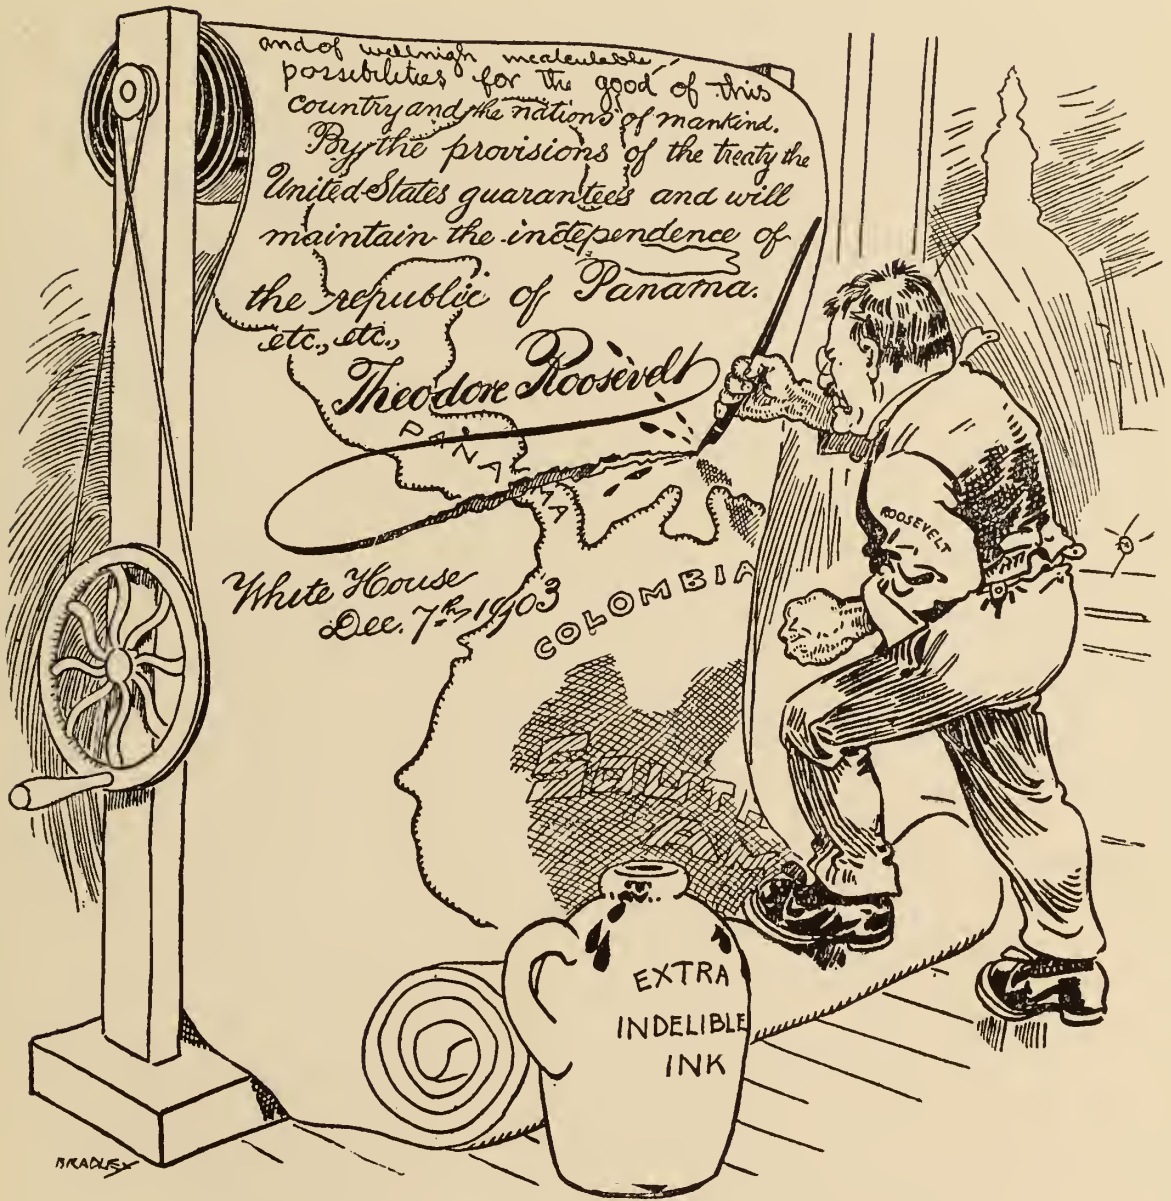 and of wellnigh incalculable
possibilities for the good of this
country and the nations of mankind.
By the provisions of the treaty the
United States guarantees and will
maintain the independence of
the republic of Panama.
etc., etc.,
Theodore Roosevelt
PANAMA
White House
Dec. 7th, 1903
COLOMBIA
ROOSEVELT
SOUTH
EXTRA
INDELIBLE
INK
BRADLEY